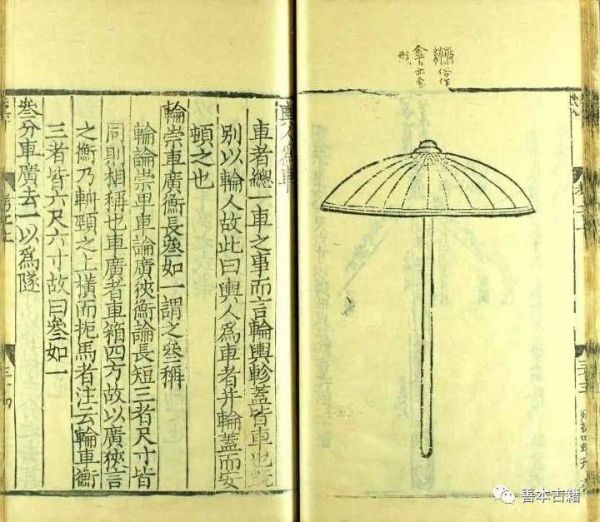 俗作
傘亦象
形
輿人爲車
車者總一車之事而言輪輿軫蓋皆車也既
別以輪人故此曰輿人爲車者并輪蓋而安
頓之也
輪崇車廣衡長叄如一謂之叄稱
輪論崇卑車論廣狹衡論長短三者尺寸皆
同則相稱也車廣者車箱四方故以廣狹言
之衡乃輈頸之上橫而扼馬者注云輪車衡
三者皆六尺六寸故曰叄如一
叄分車廣去一以爲隧
善本古籍